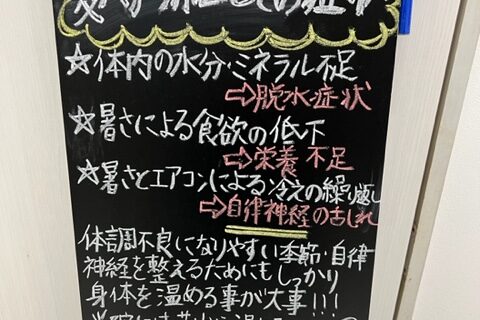 ☆体内の水分・ミネラル不足
⇨脱水症状
☆暑さによる食欲の低下
⇨栄養不足
☆暑さとエアコンによる冷えの繰り返し
⇨自律神経の乱れ
体調不良になりやすい季節・自律
神経を整えるためにもしっかり
身体を温める事が大事!!!